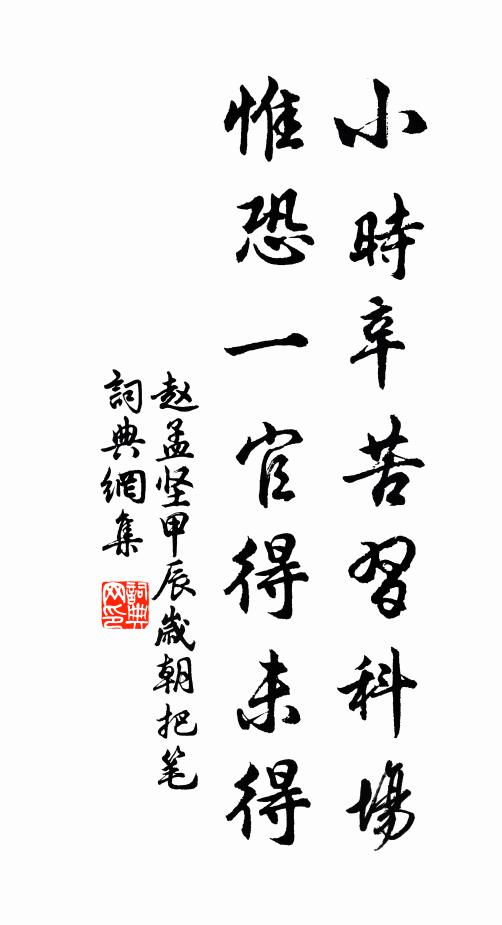 小時辛苦習科場
惟恐一官得未得
赵孟坚甲辰歲朝把笔
詞典網集
詞典网印